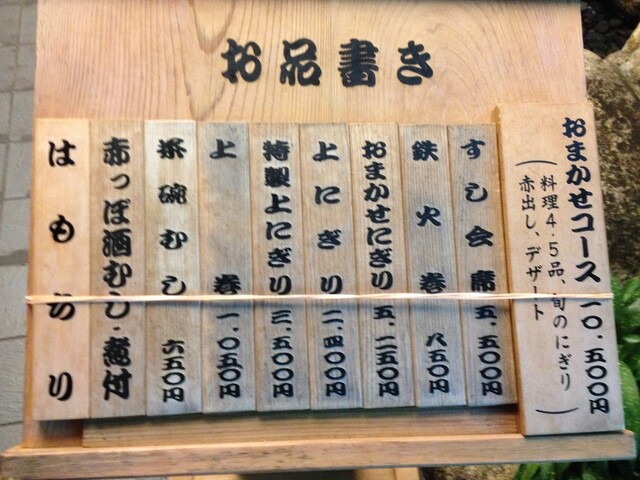 お品書き
おまかせコース 一〇、五〇〇円
（料理4.5品、旬のにぎり
赤出し、デザート）
すし会席 五、五〇〇円
鉄火巻 八五〇円
おまかせにぎり 五、二五〇円
上にぎり 二、四〇〇円
特製上にぎり 三、五〇〇円
上巻 一、〇五〇円
茶碗むし 六五〇円
赤っぽ酒むし・煮付
はもちり